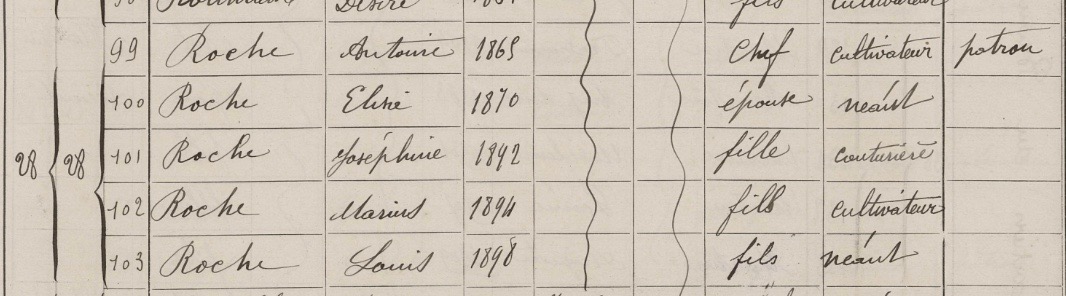 Désiré fils cultivateur
99 Roche Antoine 1865 Chef cultivateur patron
100 Roche Elise 1870 épouse néant
28 28 101 Roche Joséphine 1892 fille couturière
102 Roche Marius 1894 fils cultivateur
103 Roche Louis 1898 fils néant